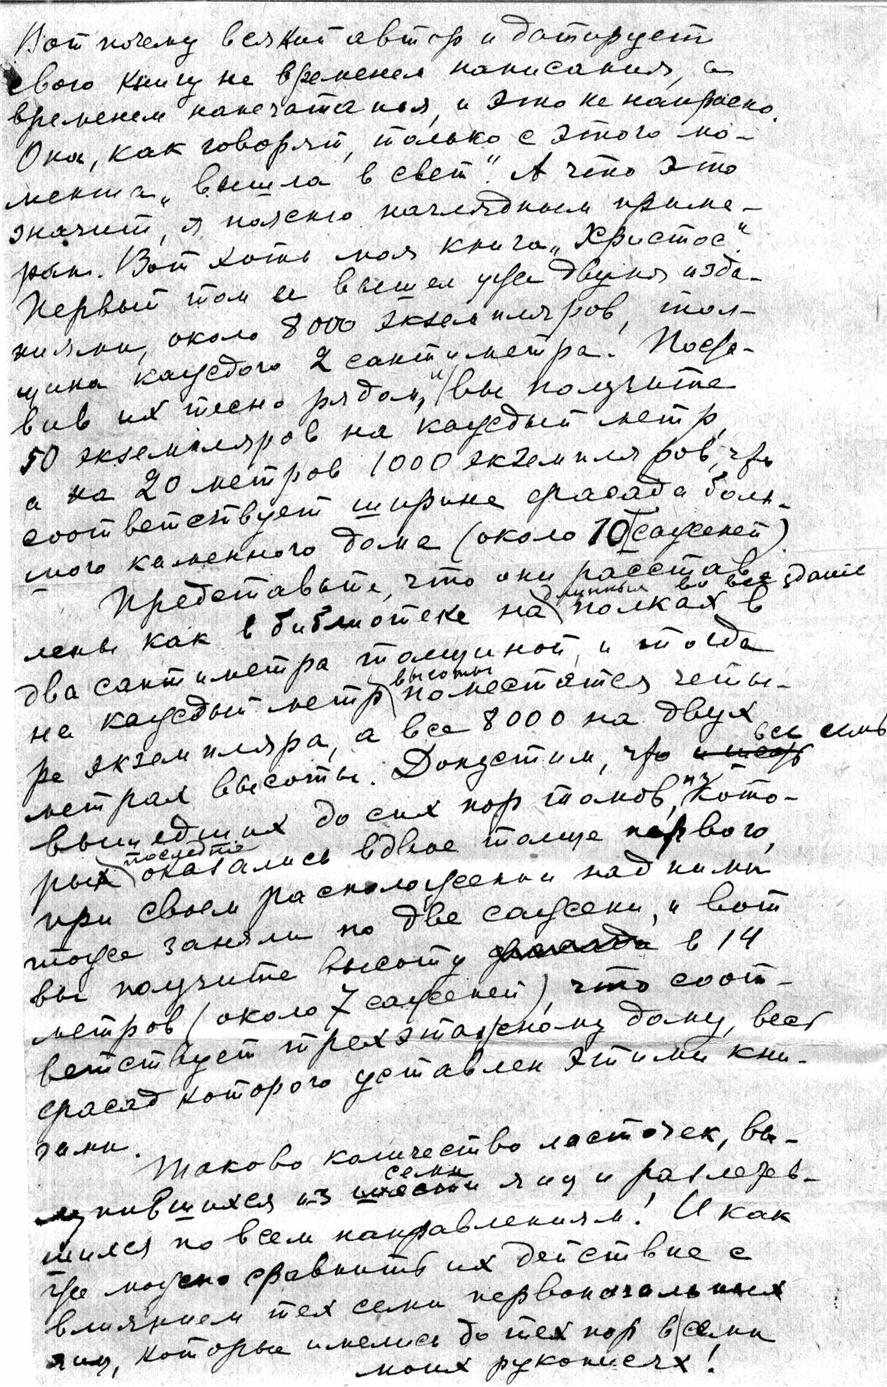 Вот почему всякий автор и датирует
свою книгу не временем написания, а
временем напечатанья, и это не напрасно.
Она, как говорят, только с этого мо-
мента „вышла в свет“. А что это
значит, я поясню наглядным приме-
ром. Вот хоть моя книга „Христос“.
Первый том ее вышел уже двумя изда-
ниями, около 8000 экземпляров, тол-
щина каждого 2 сантиметра. Поста-
вив их тесно рядом, вы получите
50 экземпляров на каждый метр,
а на 20 метров 1000 экземпляров, что
соответствует ширине фасада боль-
шого каменного дома (около 10 саженей).
Представьте, что они расстав-
лены как в библиотеке на длинных полках в во все здание
два сантиметра толщиной, и тогда
на каждый метр высоты поместятся четы-
ре экземпляра, а все 8000 на двух
метрах высоты. Допустим, что все семь
вышедших до сих пор томов, из кото-
рых последние оказались вдвое толще первого,
при своем расположении над ними
тоже заняли по две сажени, и вот
вы получите высоту фасада в 14
метров (около 7 саженей), что соот-
ветствует трехэтажному дому, весь
фасад которого уставлен этими кни-
гами.
Таково количество ласточек, вы-
лупившихся из семи яиц и разлетев-
шихся по всем направлениям! И как
же можно сравнить их действие с
влиянием тех семи первоначальных
яиц, которые имелись до тех пор в семи
моих рукописях!